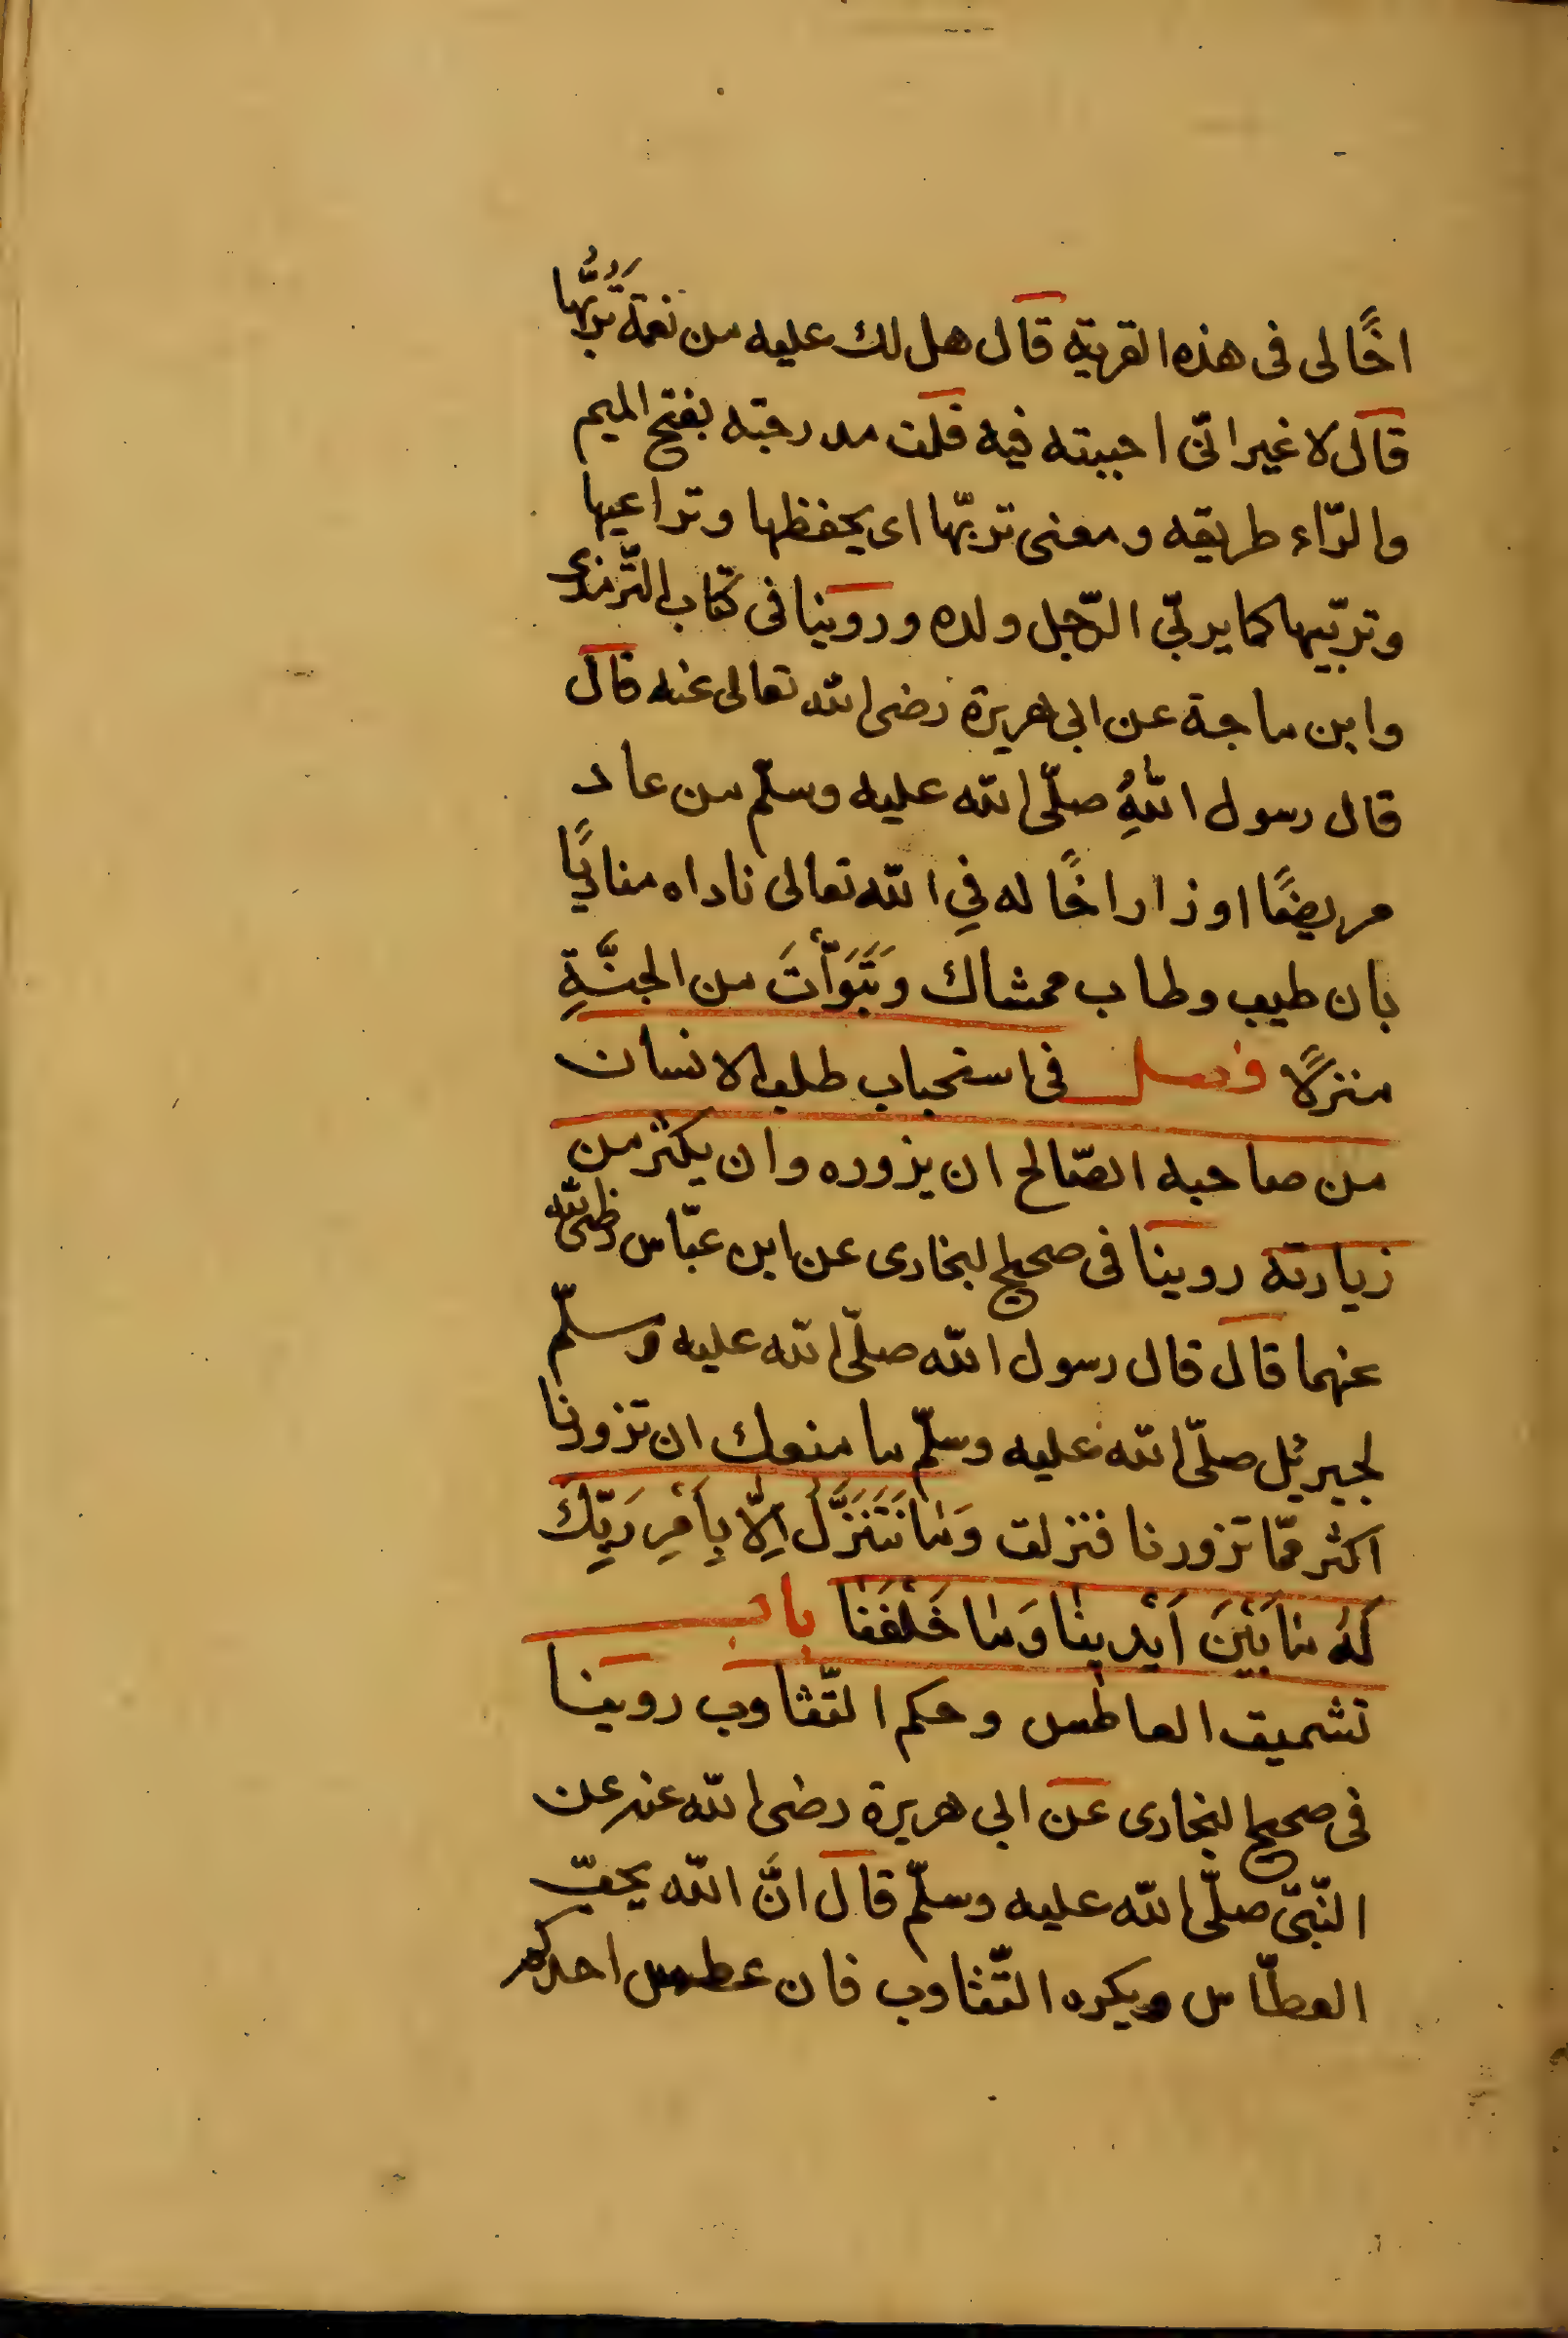 اخًا لى فى هذه القرية قال هل لك عليه من نعمة تَرُبُّها
قال لا غير انّى احببته فيه قلت مدرجته بفتح الميم
والرّاء طريقه ومعنى تربّها اى يحفظها وتراعيها
وتربّيها كما يربّى الرّجل ولده وروينا فى كتاب التّرمذى
وابن ماجة عن ابى هريرة رضى الله تعالى عنه قال
قال رسول اللهِ صلّى الله عليه وسلّم من عاد
مريضًا او زار اخًا له فى الله تعالى ناداه مناديًا
بان طيب وطاب ممشاك وَتَبَوَّأْتَ من الجنَّةِ
منزلًا فصل فى استحباب طلب الانسان
من صاحبه الصّالح ان يزوره وان يكثر من
زيارته روينا فى صحيح البخارى عن ابن عبّاس رضى الله
عنهما قال قال رسول الله صلّى الله عليه وسلّم
لجبرئل صلّى الله عليه وسلّم ما منعك ان تزورنا
اكثر ممّا تزورنا فنزلت وَمَا نَتَنَزَّلُ اِلّا بِاَمْرِ رَبِّكَ
لَهُ مَا بَيْنَ اَيْدِينَا وَمَا خَلْفَنَا باب
تشميت العاطس وحكم التّثاوب روينا
فى صحيح البخارى عن ابى هريرة رضى الله عنه عن
النّبىّ صلّى الله عليه وسلّم قال انَّ الله يحبّ
العطّاس ويكره التّثاوب فان عطس احدكم